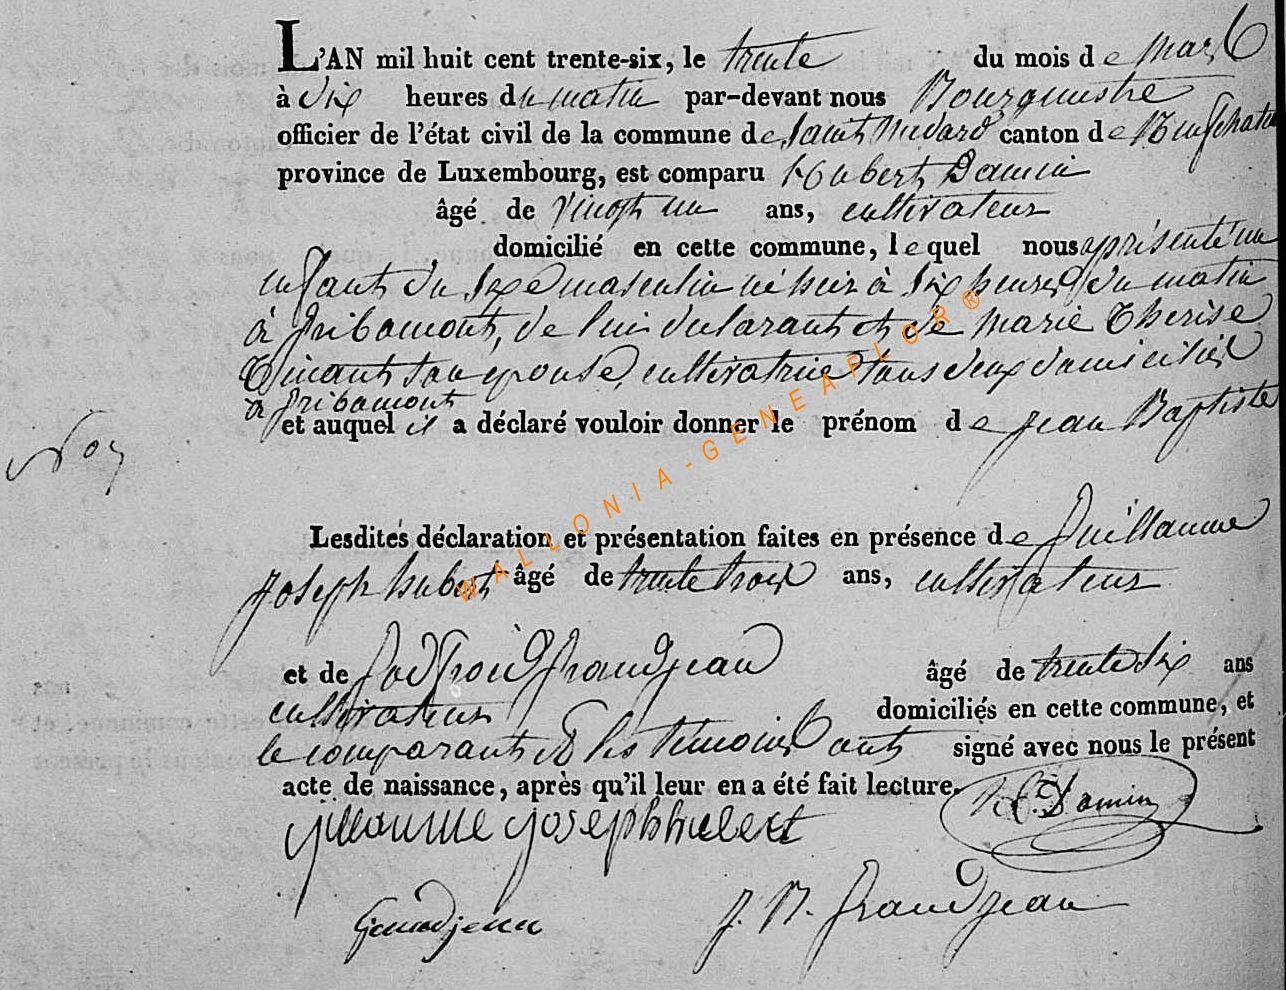 L'AN mil huit cent trente-six, le trente du mois de Mars
à dix heures du matin par-devant nous Bourgmestre
officier de l'état civil de la commune de Saint Médard canton de Neufchateau
province de Luxembourg, est comparu Hubert Damin
âgé de vingt un ans, cultivateur
domicilié en cette commune, lequel nous a présenté un
enfant du sexe masculin né hier à six heures du matin
à gribomont, de lui déclarant et de Marie Therèse
Tinant son epouse, cultivatrice tous deux domiciliés
à gribomont
et auquel il a déclaré vouloir donner le prénom de jean Baptiste
Lesdites déclaration et présentation faites en présence de Guillaume
joseph hubert âgé de trente trois ans, cultivateur
et de godfroid grandjean âgé de trente six ans
cultivateur domiciliés en cette commune, et
le comparant et les témoins ont signé avec nous le présent
acte de naissance, après qu'il leur en a été fait lecture.
H. Damin
guillaume joseph hubert
Grandjean
j. N. grandjean
WALLONIA-GENEAFLOR®